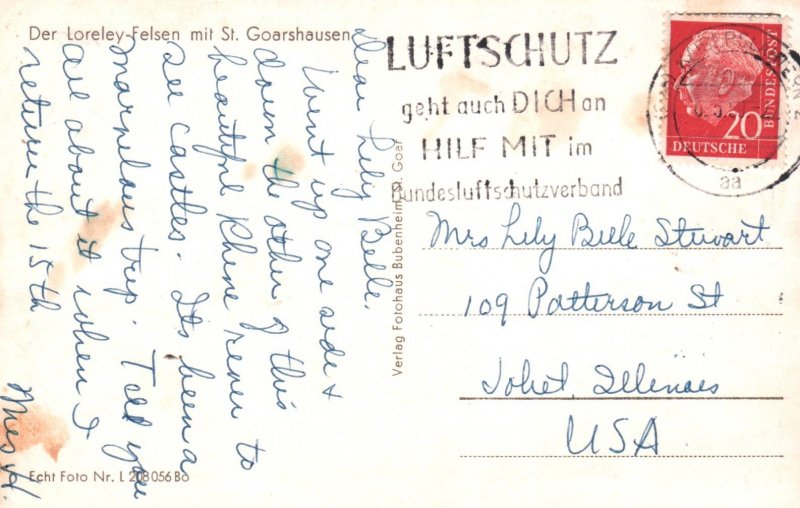 Der Loreley-Felsen mit St. Goarshausen
LUFTSCHUTZ
geht auch DICH an
HILF MIT im
Bundesluftschutzverband
20
DEUTSCHE
BUNDESPOST
aa
Dear Lily Belle,
Went up one side &
down the other of this
beautiful Rhine river to
see castles. Its been a
marvelous trip. Tell you
all about it when I
return the 15th
Mrs H.
Verlag Fotohaus Bubenheim, St. Goar
Mrs Lily Belle Stewart
109 Patterson St
Joliet Illinois
USA
Echt Foto Nr. L 208056Bo